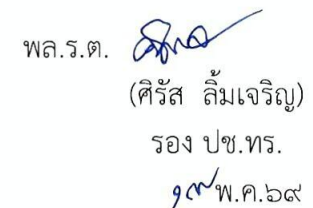 พล.ร.ต.
(ศิรัส ลิ้มเจริญ)
รอง ปช.ทร.
พ.ค.๖๙